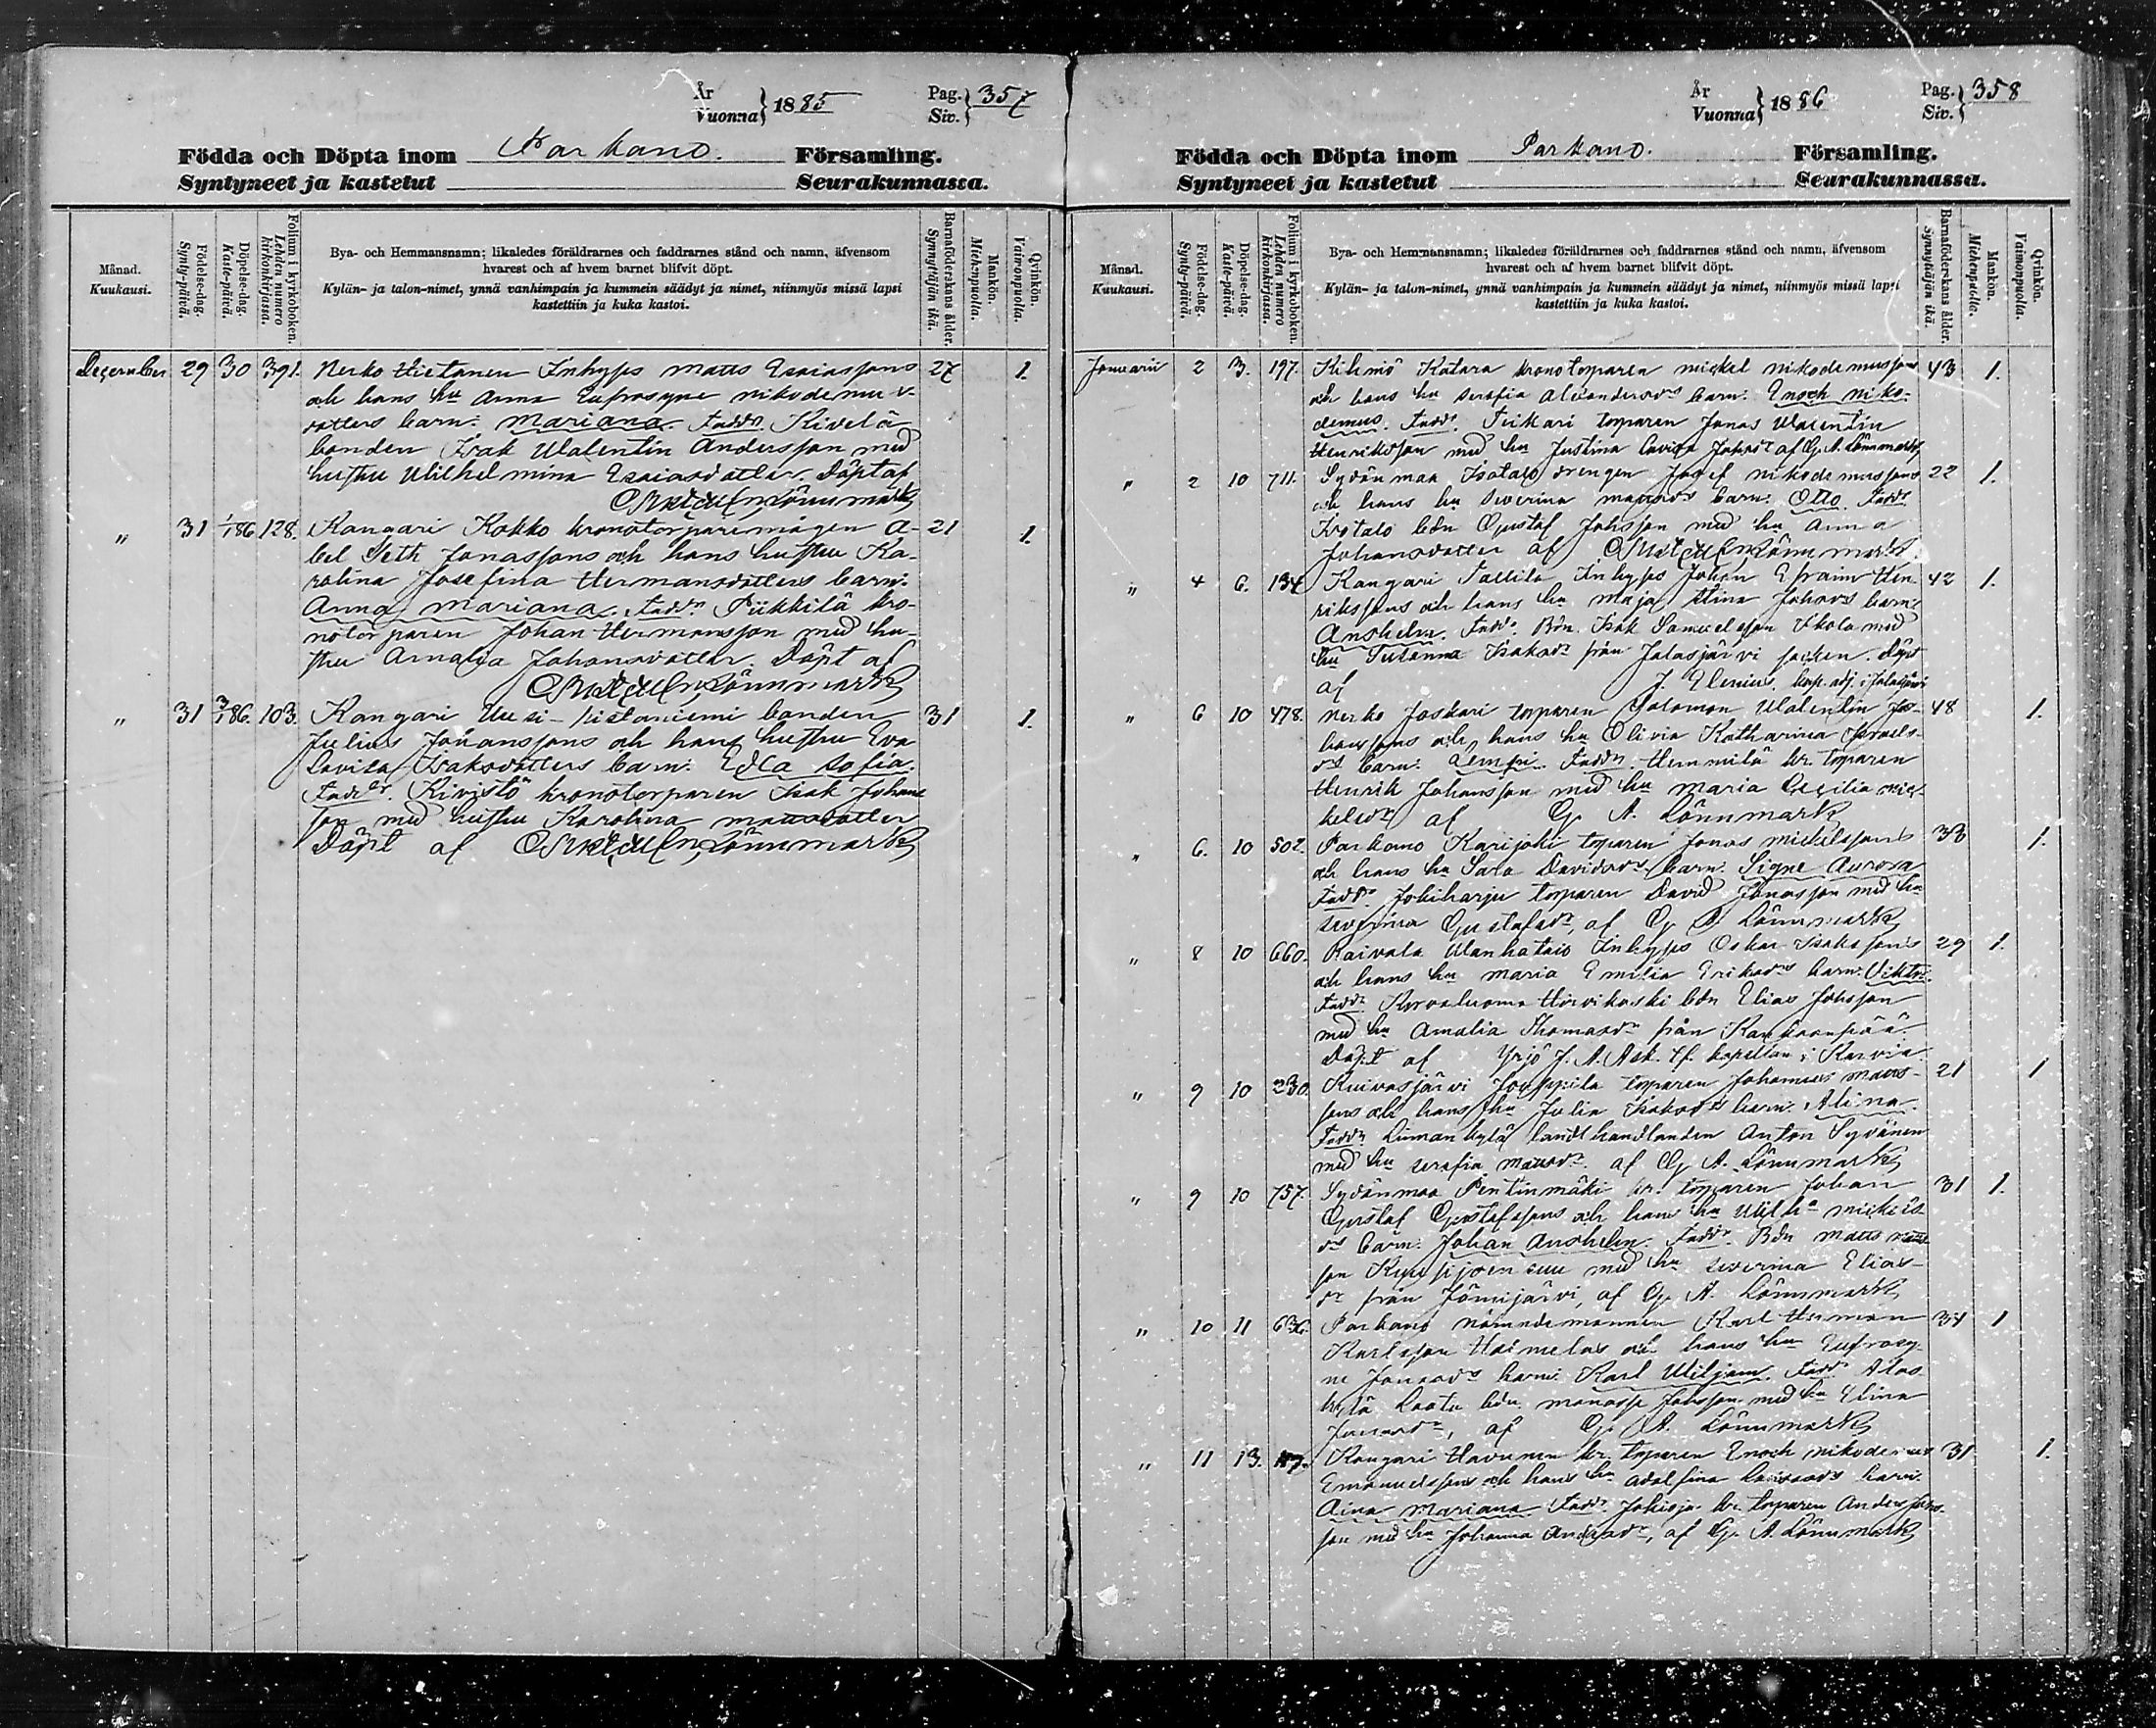 År
Vuonna } 1885
Pag.
Siv. } 357
Födda och Döpta inom Parkano. Församling.
Syntyneet ja kastetut Seurakunnassa.
Månad.
Kuukausi.
Födelse-dag.
Synty-päivä.
Döpelse-dag.
Kaste-päivä.
Folium i kyrkoboken.
Lehden numero kirkonkirjassa.
Bya- och Hemmansnamn; likaledes föräldrarnes och faddrarnes stånd och namn, äfvensom
hvarest och af hvem barnet blifvit döpt.
Kylän- ja talon-nimet, ynnä vanhimpain ja kummein säädyt ja nimet, niinmyös missä lapsi
kastettiin ja kuka kastoi.
Barnaföderskans ålder.
Synnyttäjän ikä.
Mankön.
Miehenpuolia.
Qvinkön.
Vaimonpuolia.
December 29 30 391. Nerko Hietanen Inhyses Matts Esaiassons 27 1.
och hans hu Anna Eufrosyne Nikodemus-
dotters barn: Mariana. Faddr. Kivelä
bonden Isak Walentin Andersson med
hustru Wilhelmina Esaiasdotter. Döpt af
Lönnmark
" 31 1/1 86 128. Kangari Kokko kronotorparemågen A- 21 1.
bel Seth Jonassons och hans hustru Ka-
rolina Josefina Hermansdotters barn:
Anna Mariana. Faddr. Pükkilä kro-
notorparen Johan Hermansson med hu-
stru Amalia Johansdotter. Döpt af
Lönnmark
" 31 3/1 86. 103. Kangari Uusi-Ristaniemi bonden 31 1.
Julius Johanssons och hans hustru Eva
Lovisa Isaksdotters barn: Edla Sofia.
Faddr. Kivistö kronotorparen Isak Johans
son med hustru Karolina Mattsdotter
Döpt af Lönnmark
År
Vuonna } 1886
Pag.
Siv. } 358
Födda och Döpta inom Parkano. Församling.
Syntyneet ja kastetut Seurakunnassa.
Månad.
Kuukausi.
Födelse-dag.
Synty-päivä.
Döpelse-dag.
Kaste-päivä.
Folium i kyrkoboken.
Lehden numero kirkonkirjassa.
Bya- och Hemmansnamn; likaledes föräldrarnes och faddrarnes stånd och namn, äfvensom
hvarest och af hvem barnet blifvit döpt.
Kylän- ja talon-nimet, ynnä vanhimpain ja kummein säädyt ja nimet, niinmyös missä lapsi
kastettiin ja kuka kastoi.
Barnaföderskans ålder.
Synnyttäjän ikä.
Mankön.
Miehenpuolia.
Qvinkön.
Vaimonpuolia.
Januari 2 3. 197. Kihniö Katara kronotorparen Mickel Nikodemussons 43 1.
och hans hu Serafia Alexandersdrs barn: Enoch Niko-
demus. Faddr. Teikari torparen Jonas Walentin
Henriksson med hu Justina Lovisa Johsdr af G. A. Lönnmark
" 2 10 711. Sydänmaa Isotalo drengen Josef Nikodemussons 22 1.
och hans hu Severina Mattsdrs barn: Otto. Faddr
Isotalo bdn Gustaf Johsson med hu Anna
Johansdotter af Lönnmark
" 4 6. 134 Kangari Tallila Inhyses Johan Efraim Hen- 42 1.
rikssons och hans hu Maja Stina Johansdrs barn:
Anshelm. Faddr. Bdn Isak Samuelsson Skola med
hu Susanna Isaksdr från Jalasjärvi socken. Döpt
af J. Elenius. kap. adj. i Jalasjärvi
" 6 10 478. Nerko Joskari torparen Salomon Walentin Jo- 48 1.
hanssons och hans hu Olivia Katharina Israels-
drs barn: Lempi. Faddr. Hemmilä kr. torparen
Henrik Johansson med hu Maria Cecilia Mic-
kelsdr af G. A. Lönnmark
" 6. 10 502. Parkano Karijoki torparen Jonas Mickelssons 33 1.
och hans hu Sara Davidsdrs barn: Signe Aurora
Faddr. Jokiharju torparen David Jonasson med hu
Severina Gustafsdr, af G. A. Lönnmark
" 8 10 660. Raivala Wanhatalo Inhyses Oskar Isakssons 29 1.
och hans hu Maria Emilia Eriksdrs barn: Viktor.
Faddr. Hirvikoski bdn Elias Johsson
med hu Amalia Thomasdr från Kankaanpää.
Döpt af Yrjö J. A. Ask. tf. kapellan i Karvia
" 9 10 230. Kuivasjärvi Jouppila torparen Johannes Matts- 21 1
sons och hans hu Julia Isaksdrs barn: Alina.
Faddr. Linnankylä landthandlanden Anton Sydänen
med hu Serafia Mattsdr. af G. A. Lönnmark
" 9 10 757. Sydänmaa Pentinmäki kr. torparen Johan 31 1.
Gustaf Gustafssons och hans hu Wilha Mickels-
drs barn: Johan Anshelm. Faddr. Bdn Matts Matts-
son med hu Severina Elias-
dr från Jämijärvi, af G. A. Lönnmark
" 10 11 636. Parkano nämndemannen Karl Herman 34 1
Karlsson Hatmelas och hans hu Eufrosy-
ne Jonasdrs barn: Karl Wiljam. Faddr. Alas-
kylä Laatu bdn. Manasse Johsson med hu Elina
Jonasdr, af G. A. Lönnmark
" 11 13. Kangari Havunen kr. torparen Enoch Nikodemus 31 1.
Emanuelssons och hans hu Adolfina barn:
Aina Mariana. Faddr. Jokioja kr. torparen Anders Johs-
son med hu Johanna Andersdr, af G. A. Lönnmark